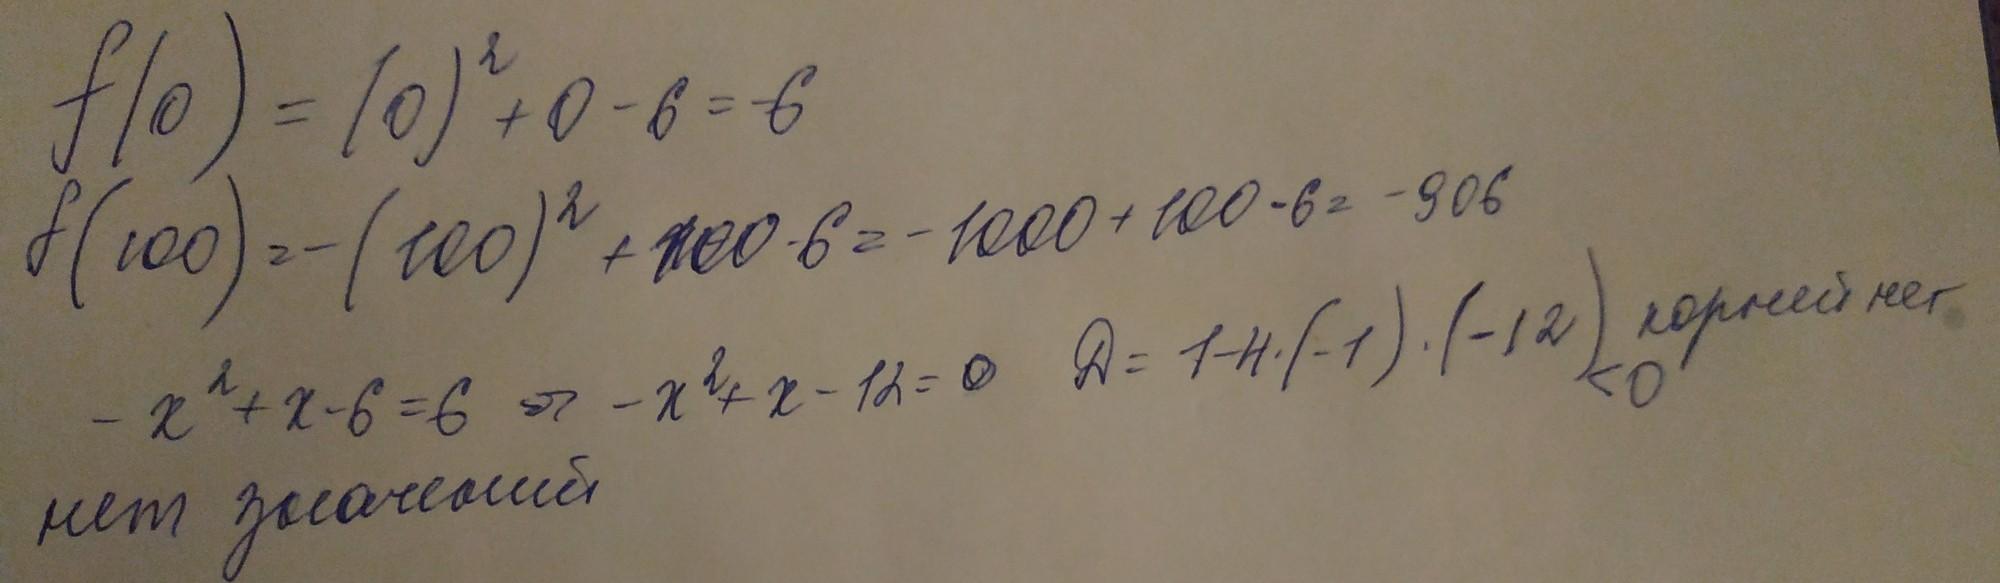 f(0) = (0)² + 0 - 6 = -6
f(100) = -(100)² + 100 - 6 = -1000 + 100 - 6 = -906
-x² + x - 6 = 6 => -x² + x - 12 = 0 D = 1 - 4·(-1)·(-12) < 0 корней нет
нет значений